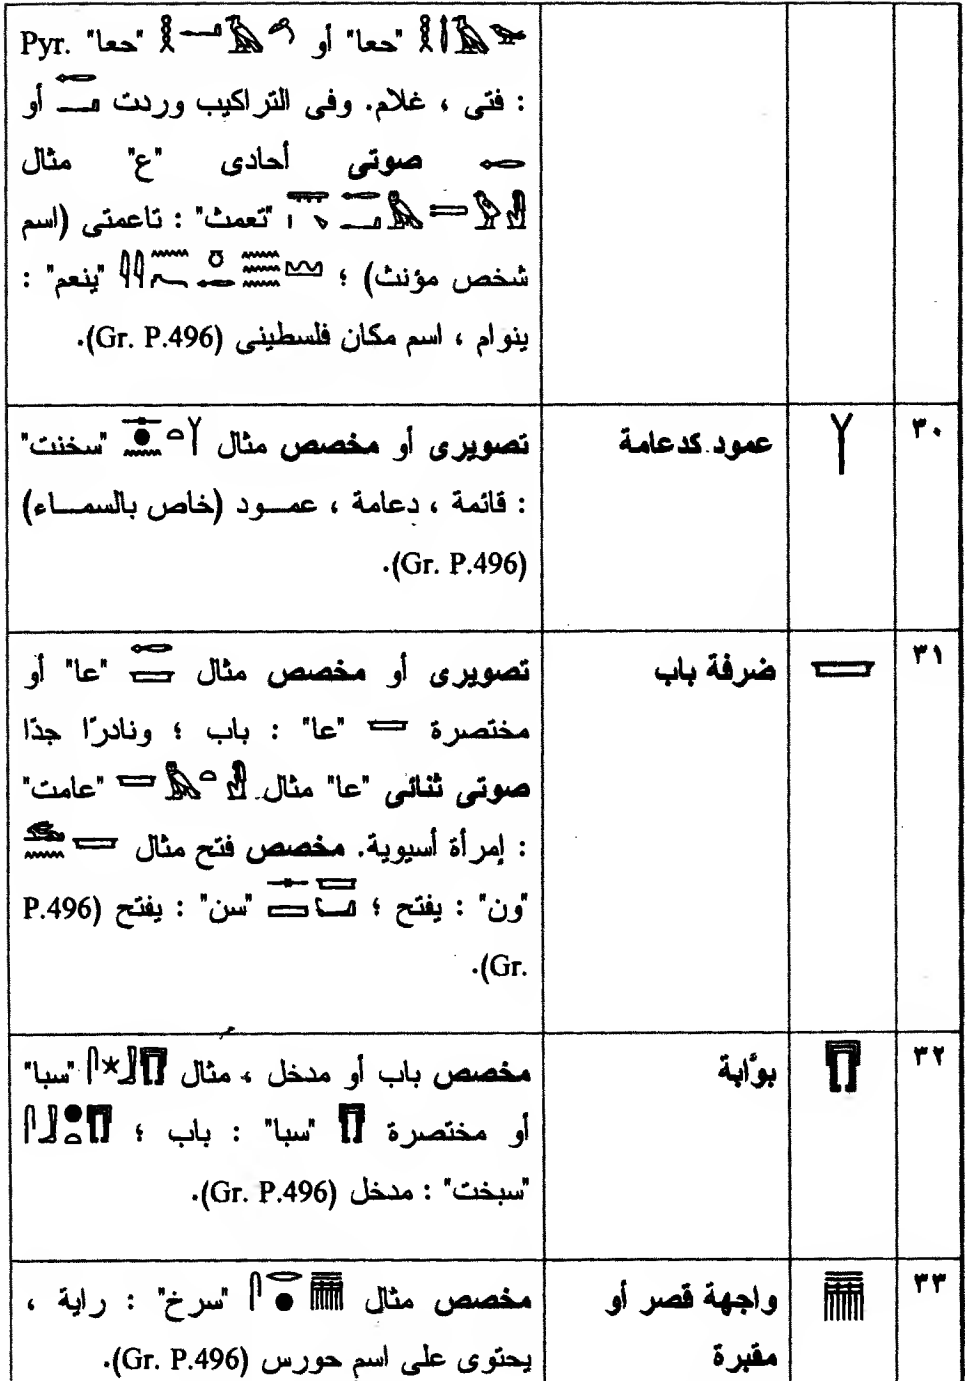 "حعا" أو "حعا" Pyr.
: فتى ، غلام. وفى التراكيب وردت أو
صوتى أحادى "ع" مثال
"تعمث" : تاعمتى (اسم
شخص مؤنث) ؛ "ينعم" :
ينوام ، اسم مكان فلسطينى (Gr. P.496).
٣٠ عمود كدعامة تصويرى أو مخصص مثال "سخنت"
: قائمة ، دعامة ، عمـــود (خاص بالسمـــاء)
(Gr. P.496).
٣١ ضرفة باب تصويرى أو مخصص مثال "عا" أو
مختصرة "عا" : باب ؛ ونادرًا جدًا
صوتى ثنائى "عا" مثال "عامت"
: إمرأة أسيوية. مخصص فتح مثال
"ون" : يفتح ؛ "سن" : يفتح (P.496
Gr.).
٣٢ بوَّابة مخصص باب أو مدخل ، مثال "سبا"
أو مختصرة "سبا" : باب ؛
"سبخت" : مدخل (Gr. P.496).
٣٣ واجهة قصر أو مخصص مثال "سرخ" : راية ،
مقبرة يحتوى على اسم حورس (Gr. P.496).